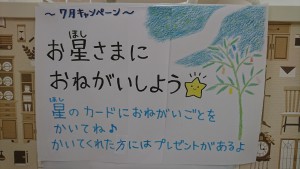 ～7月キャンペーン～
お星さまに
ほし
おねがいしよう
星のカードにおねがいごとを
ほし
かいてね♪
かいてくれた方にはプレゼントがあるよ